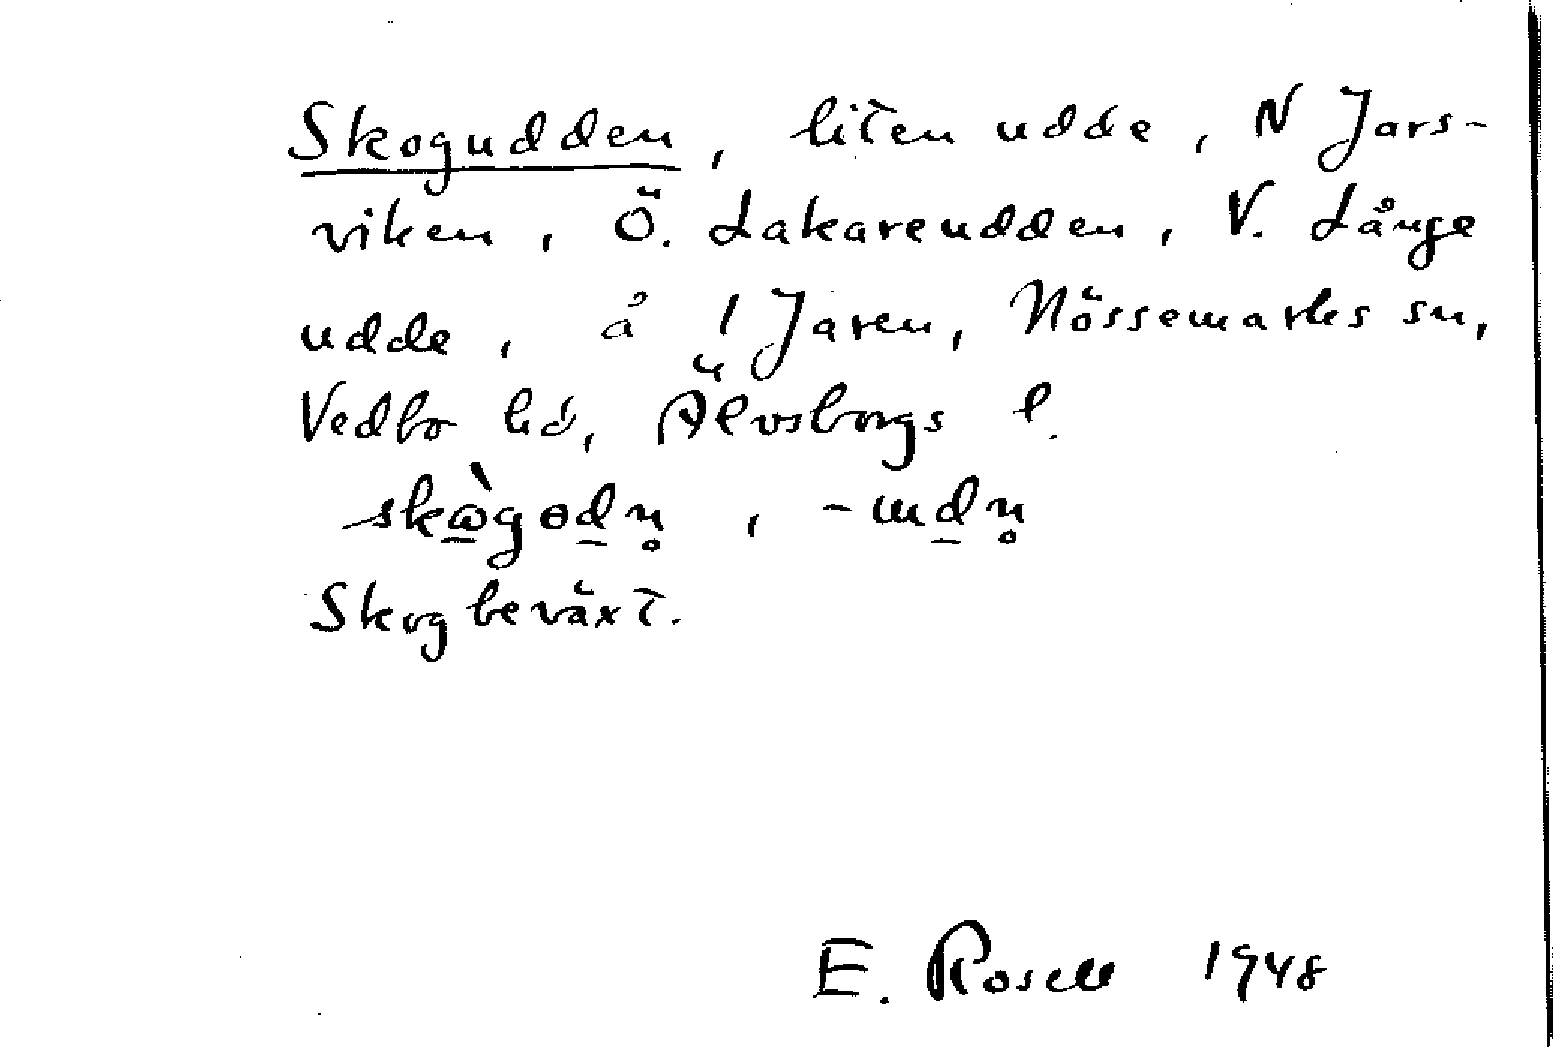 Skogudden, liten udde, N Jars-
viken, Ö. Lakareudden, V. Långe
udde, å 1 Jaren, Nössemarks sn,
Vedbo hd, Älvsborgs l.
skὼ̲gɵd̲n̥, -ɯd̲n̥
Skogbeväxt.
E. Rosell 1948